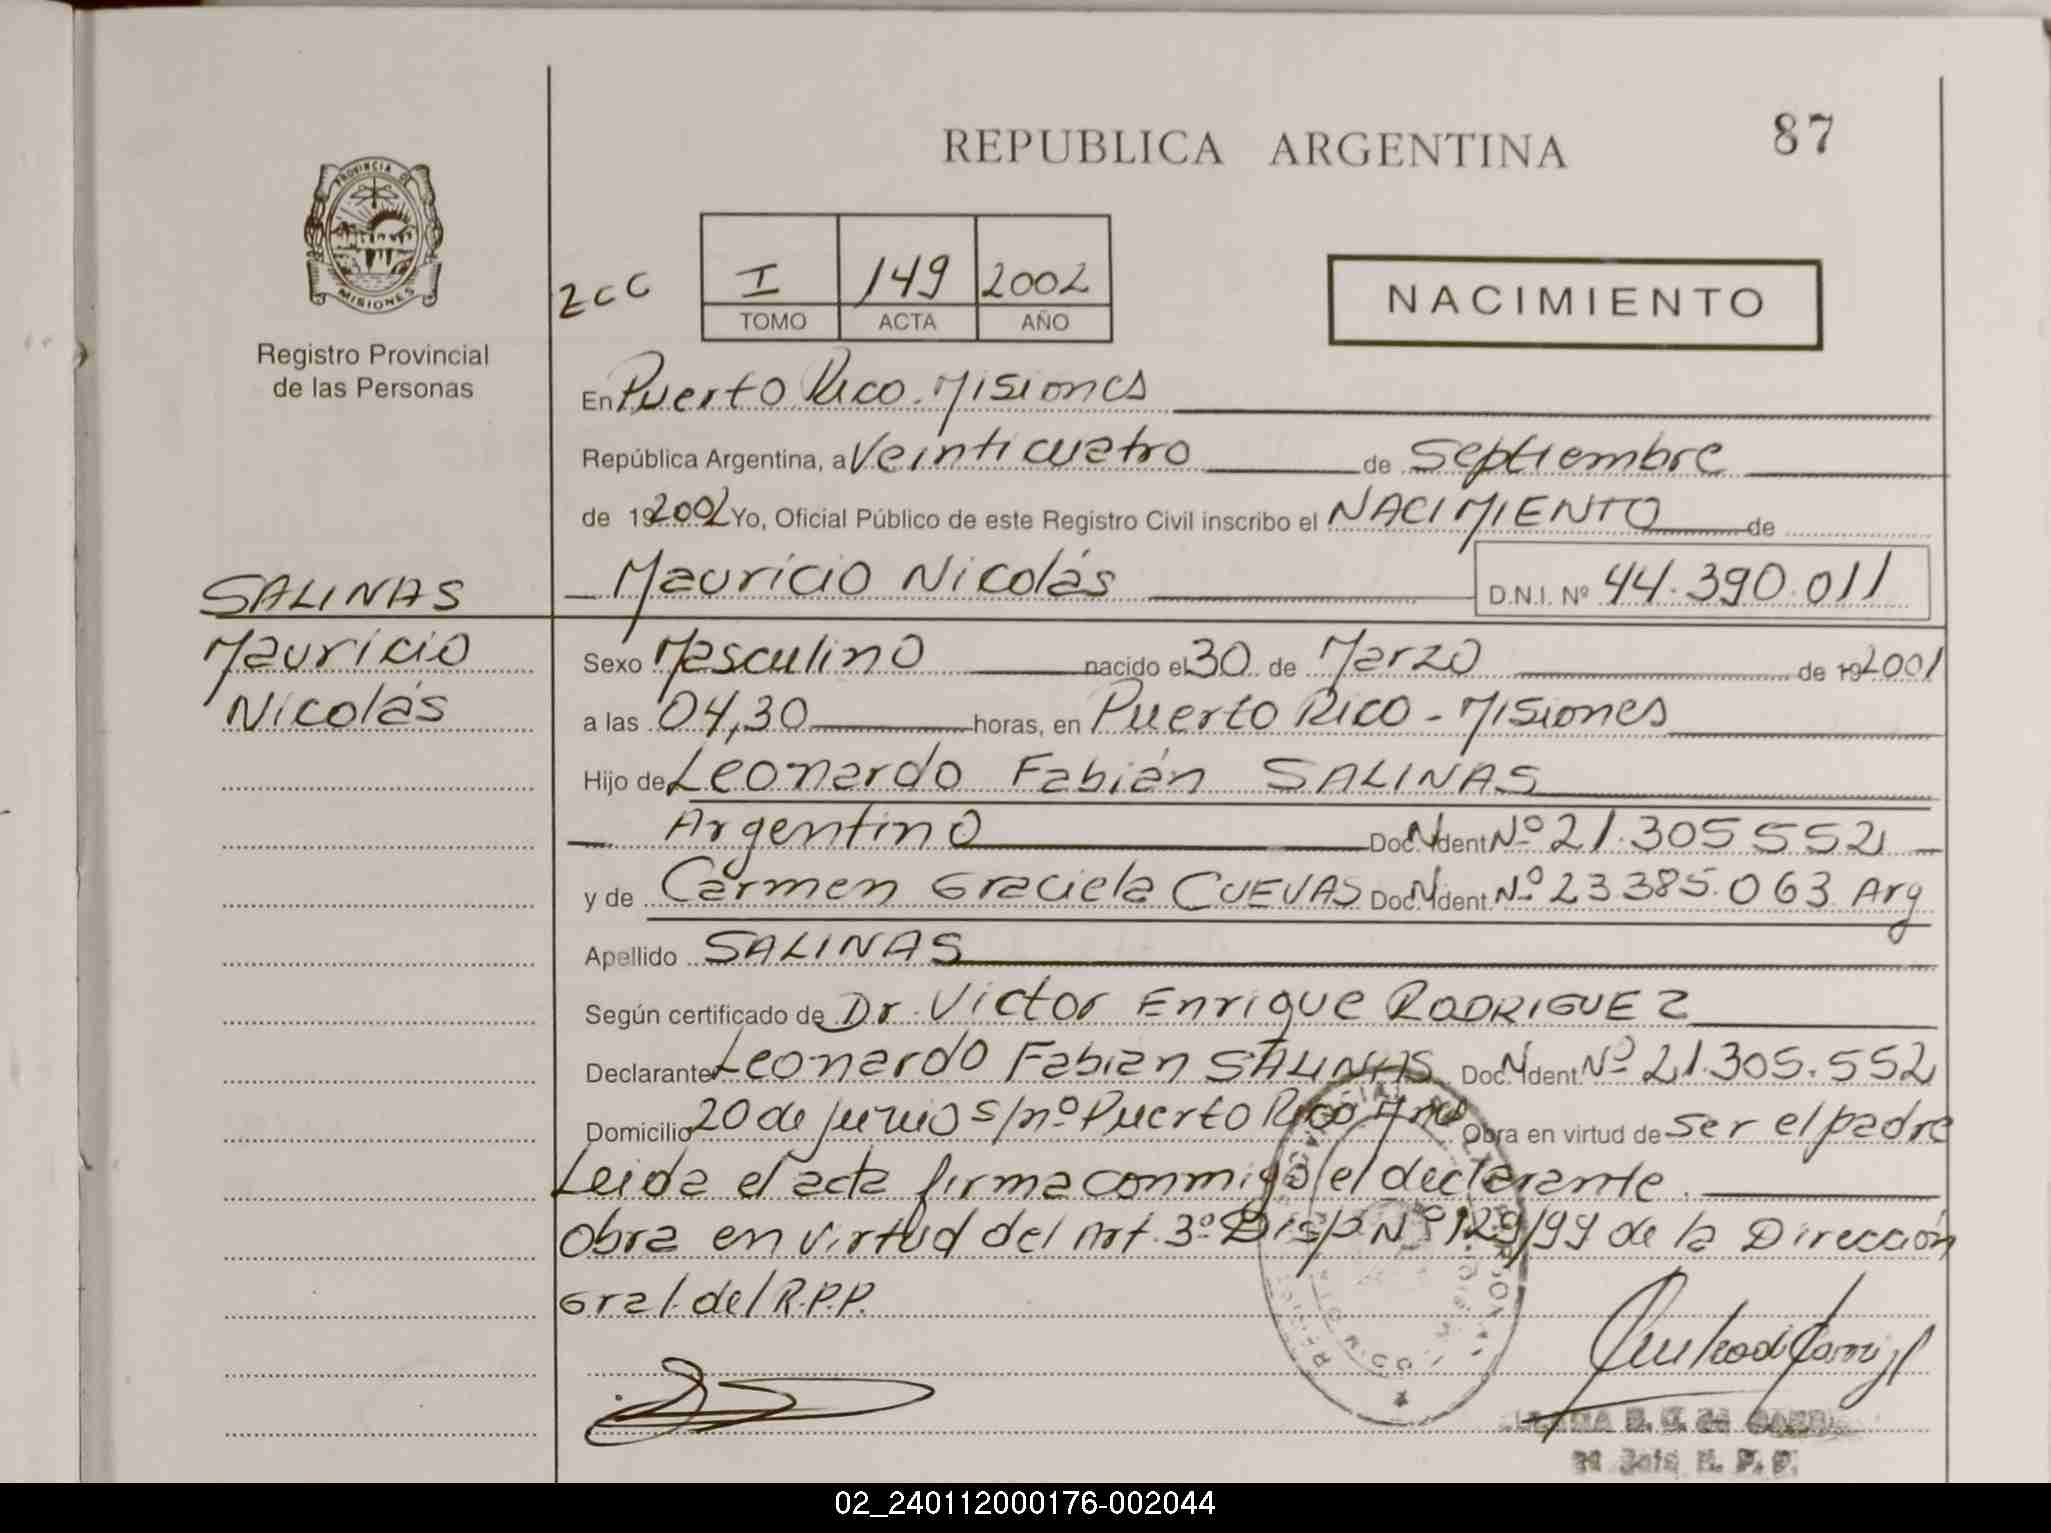 REPUBLICA ARGENTINA
87
PROVINCIA DE
MISIONES
Registro Provincial
de las Personas
2cc
I 149 2002
TOMO ACTA AÑO
NACIMIENTO
En Puerto Rico. Misiones
República Argentina, a Veinticuatro de Septiembre
de 192002 Yo, Oficial Público de este Registro Civil inscribo el NACIMIENTO de
Mauricio Nicolás D.N.I. Nº 44.390.011
SALINAS
Mauricio
Nicolás
Sexo Masculino nacido el 30 de Marzo de 192001
a las 04,30 horas, en Puerto Rico - Misiones
Hijo de Leonardo Fabián SALINAS
Argentino Doc. N Ident Nº 21.305552
y de Carmen Graciela CUEVAS Doc. N Ident. Nº 23385.063 Arg
Apellido SALINAS
Según certificado de Dr. Victor Enrique RODRIGUEZ
Declarante Leonardo Fabian SALINAS Doc. N Ident. Nº 21.305.552
Domicilio 20 de junio s/nº Puerto Rico Mnes Obra en virtud de ser el padre
Leida el acta firma conmigo el declarante.
Obra en virtud del Art. 3º Disp. Nº 129/99 de la Dirección
Gral. del R.P.P.
02_240112000176-002044